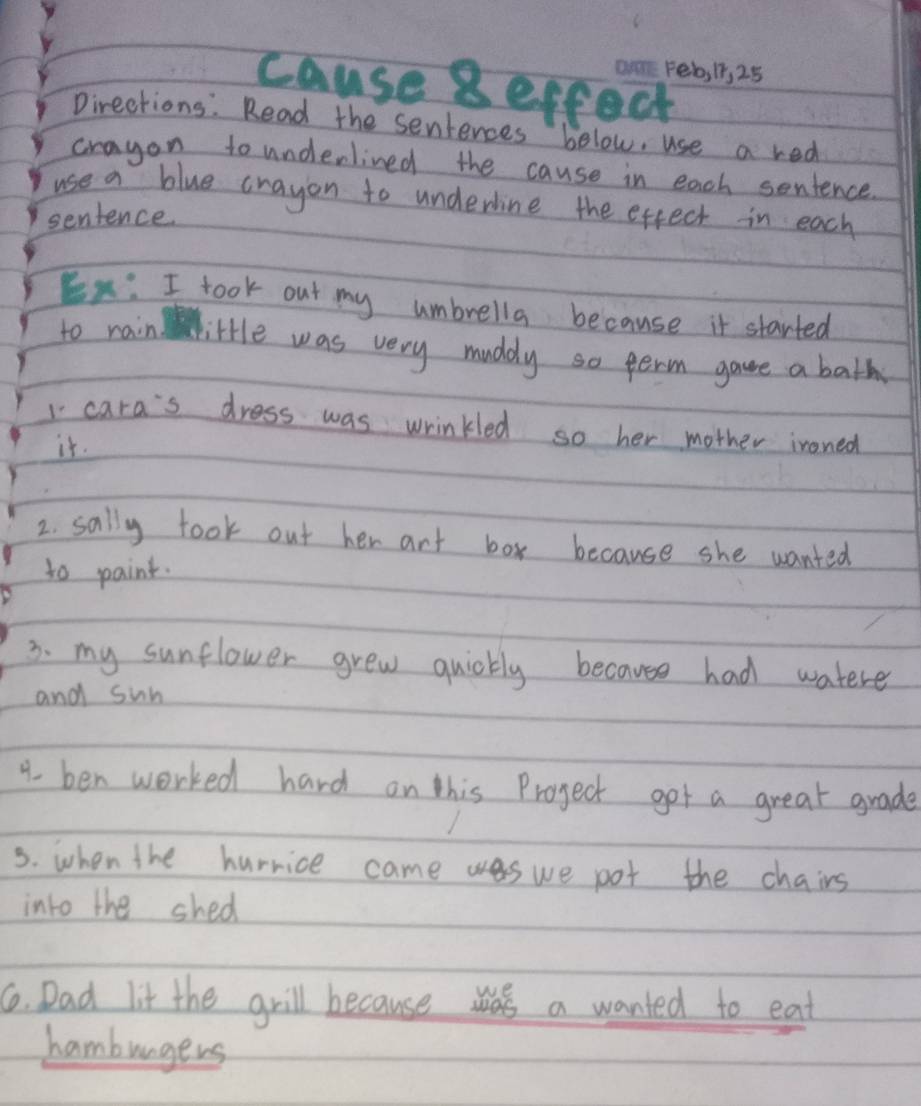 DATE Feb,17,25
Cause & effect
Directions: Read the sentences below. use a red
crayon to underlined the cause in each sentence.
use a blue crayon to underline the effect in each
sentence.
Ex: I took out my umbrella because it started
to rain. little was very muddy so ferm gave a bath.
1. cara's dress was wrinkled so her mother ironed
it.
2. sally took out her art box because she wanted
to paint.
3. my sunflower grew quickly because had watere
and sun
4- ben worked hard on this Project got a great grade
5. when the hurrice came was we pot the chairs
into the shed
6. Dad lit the grill because we a wanted to eat
hambungers